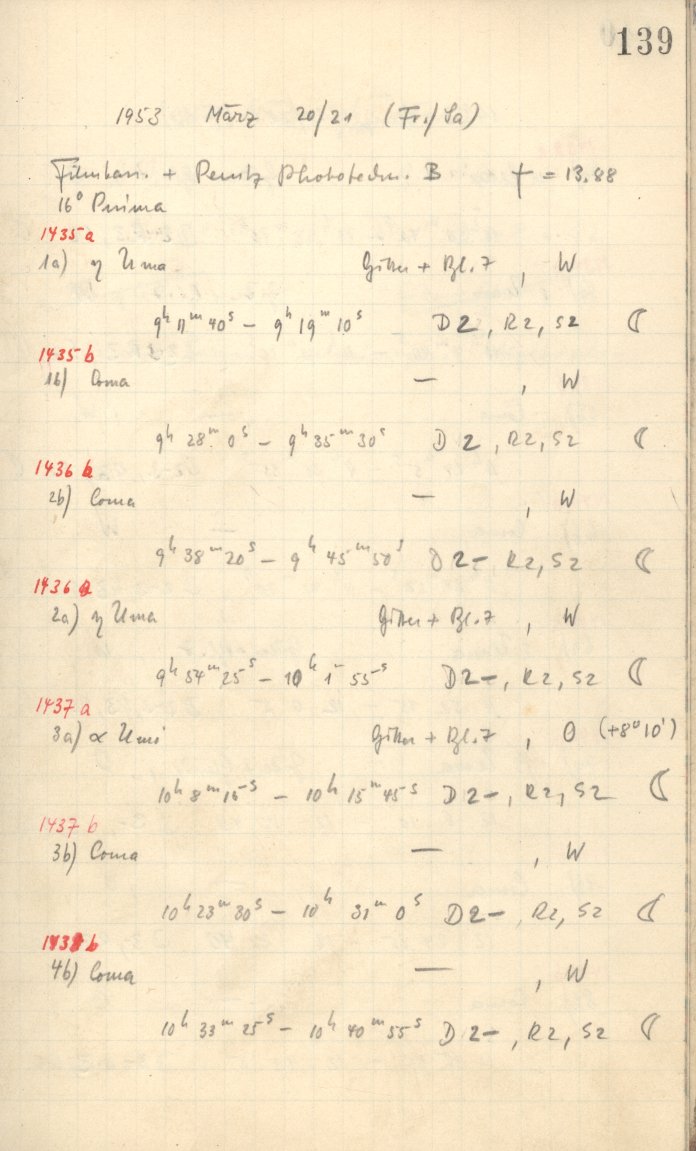 139
1953 März 20/21 (Fr./Sa)
+ Perutz B f = 13.88
16° Prisma
1435a
1a) η Uma Gitter + Bl. 7 , W
9h 11m 40s – 9h 19m 10s D2, R2, S2 ☾
1435b
1b) Coma — , W
9h 28m 0s – 9h 35m 30s D 2, R2, S2 ☾
1436 b
2b) Coma — , W
9h 38m 20s – 9h 45m 50s D 2– R2, S2 ☾
1436 a
2a) η Uma Gitter + Bl. 7 , W
9h 54m 25s – 10h 1m 55s D2–, R2, S2 ☾
1437a
3a) α Umi Gitter + Bl. 7 , O (+8° 10')
10h 8m 15s – 10h 15m 45s D 2–, R2, S2 ☾
1437 b
3b) Coma — , W
10h 23m 30s – 10h 31m 0s D2–, R2, S2 ☾
1438b
4b) Coma — , W
10h 33m 25s – 10h 40m 55s D 2–, R2, S2 ☾